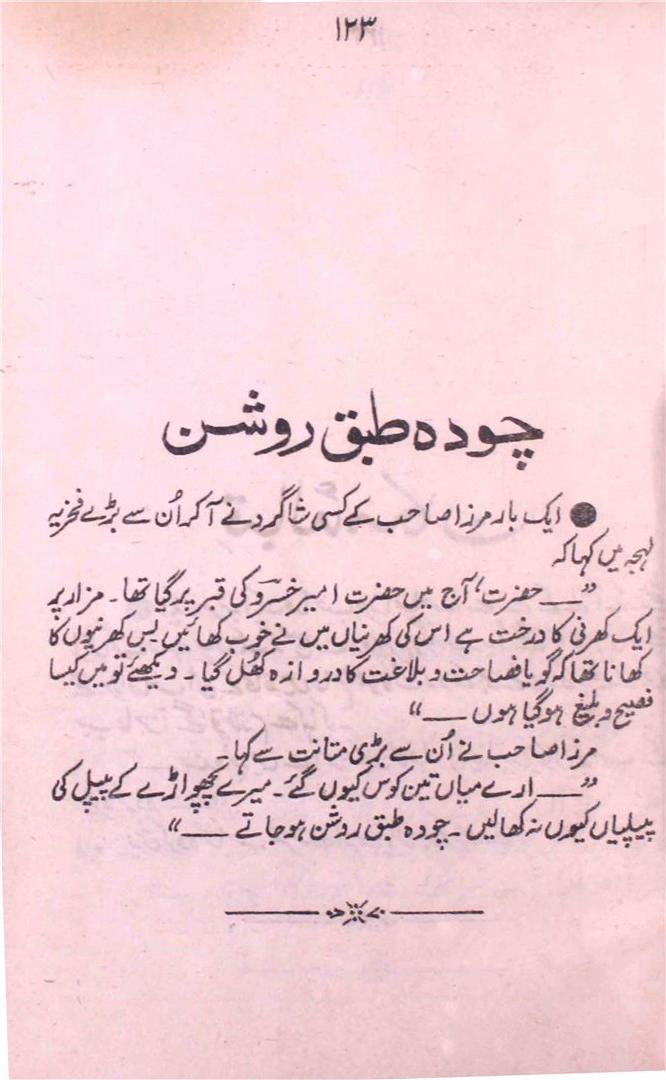 ۱۲۳
چودہ طبق روشن
● ایک بار مرزا صاحب کے کسی شاگرد نے آکر اُن سے بڑے فخریہ
لہجہ میں کہا کہ
”ــــ حضرت، آج میں حضرت امیر خسروؔ کی قبر پر گیا تھا۔ مزار پر
ایک کھرنی کا درخت ہے اس کی کھرنیاں میں نے خوب کھائیں بس کھرنیوں کا
کھانا تھا کہ گویا فصاحت و بلاغت کا دروازہ کھُل گیا۔ دیکھئے تو میں کیسا
فصیح و بلیغ ہوگیا ہوں ــــ“
مرزا صاحب نے اُن سے بڑی متانت سے کہا۔
”ــــ ارے میاں تین کوس کیوں گئے۔ میرے پچھواڑے کے پیپل کی
پیپلیاں کیوں نہ کھالیں۔ چودہ طبق روشن ہوجاتے ــــ“